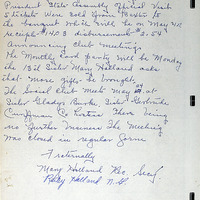 President State Assembly official Visit
Tickets were sold from Porter to
the banquet which will be on May 4th
receipt $40.3 disbursement 3.54
Announcing Club meeting.
The Monthly Card party will be Monday
the 13th Sister Mary Holland asks
that more gifts be brought.
The Social club meets May at
Sister Gladys Burke, Sister Gertrude
Co Hostess There being
no further business The Meeting
was closed in regular form
Fraternally
Mary Holland Rec. Secy.
Holland N.G.